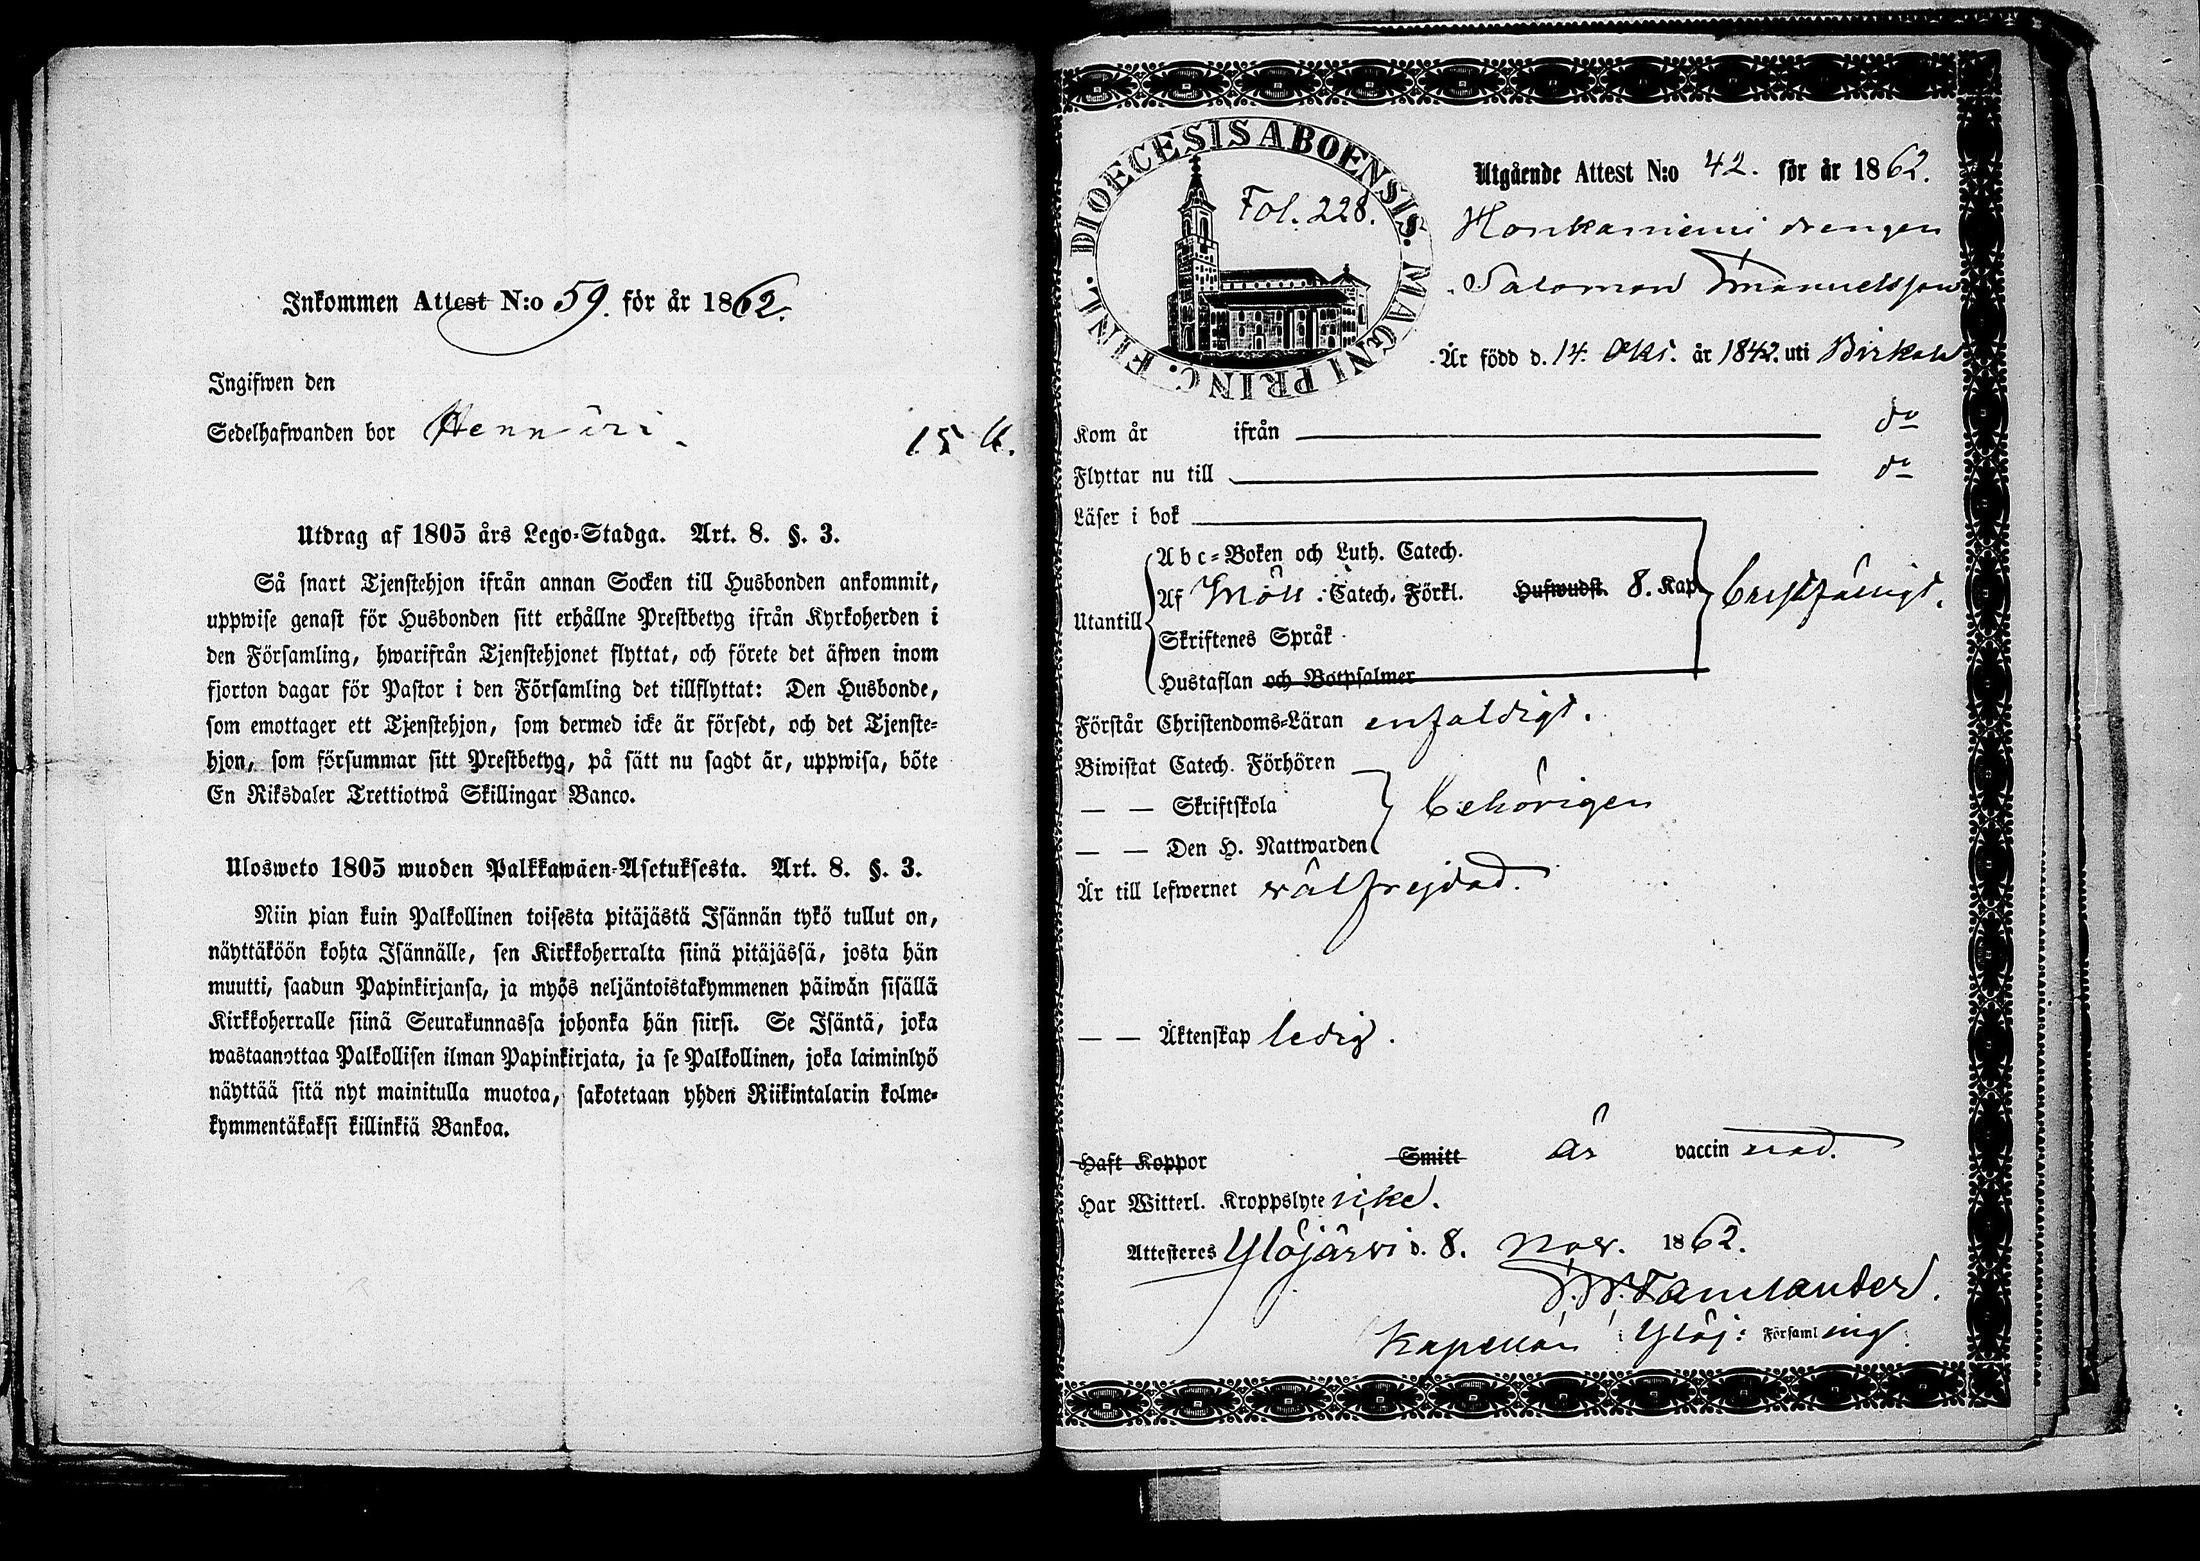 Inkommen Attest N:o 59. för år 1862.
Ingifwen den
Sedelhafwanden bor
15
Utdrag af 1805 års Lego-Stadga. Art. 8. §. 3.
Så snart Tjenstehjon ifrån annan Socken till Husbonden ankommit,
uppwise genast för Husbonden sitt erhållne Prestbetyg ifrån Kyrkoherden i
den Församling, hwarifrån Tjenstehjonet flyttat, och förete det äfwen inom
fjorton dagar för Pastor i den Församling det tillflyttat: Den Husbonde,
som emottager ett Tjenstehjon, som dermed icke är försedt, och det Tjenste-
hjon, som försummar sitt Prestbetyg, på sätt nu sagdt är, uppwisa, böte
En Riksdaler Trettiotwå Skillingar Banco.
Ulosweto 1805 wuoden Palkkawäen-Asetuksesta. Art. 8. §. 3.
Niin pian kuin Palkollinen toisesta pitäjästä Isännän tykö tullut on,
näyttäköön kohta Isännälle, sen Kirkkoherralta siinä pitäjässä, josta hän
muutti, saadun Papinkirjansa, ja myös neljäntoistakymmenen päiwän sisällä
Kirkkoherralle siinä Seurakunnassa johonka hän siirsi. Se Isäntä, joka
wastaanottaa Palkollisen ilman Papinkirjata, ja se Palkollinen, joka laiminlyö
näyttää sitä nyt mainitulla muotoa, sakotetaan yhden Riikintalarin kolme-
kymmentäkaksi killinkiä Bankoa.
DIOECESIS ABOENSIS. MAGNI PRINC. FINL.
Fol. 228.
Utgående Attest N:o 42. för år 1862.
Honkaniemi drengen
Salomon Emanuelsson
Är född d. 14. Okt. år 1842. uti Birkala
Kom år ifrån do
Flyttar nu till do
Läser i bok
Abc-Boken och Luth. Catech.
Utantill Af Möll: Catech. Förkl. Hufwudst. 8. Kap
Skriftenes Språk
Hustaflan och Botpsalmer
bristfälligt.
Förstår Christendoms-Läran enfaldigt.
Biwistat Catech. Förhören
— — Skriftskola behörigen
— — Den H. Nattwarden
Är till lefwernet välfrejdad.
— — Äktenskap ledig.
Haft Koppor Smitt är vaccinerad.
Har Witterl. Kroppslyte icke.
Attesteres Ylöjärvi d. 8. Nov. 1862.
Tamlander.
Kapellan i Ylöj: Församling.